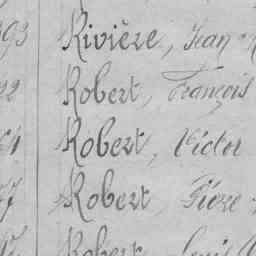 93 Rivière, Jean
Robert, François
Robert, Victor
Robert, Pierre
Robert, Louis